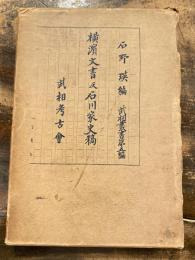 石野瑛編 武相叢書第五編
横濱文書及石川家史稿
武相考古會